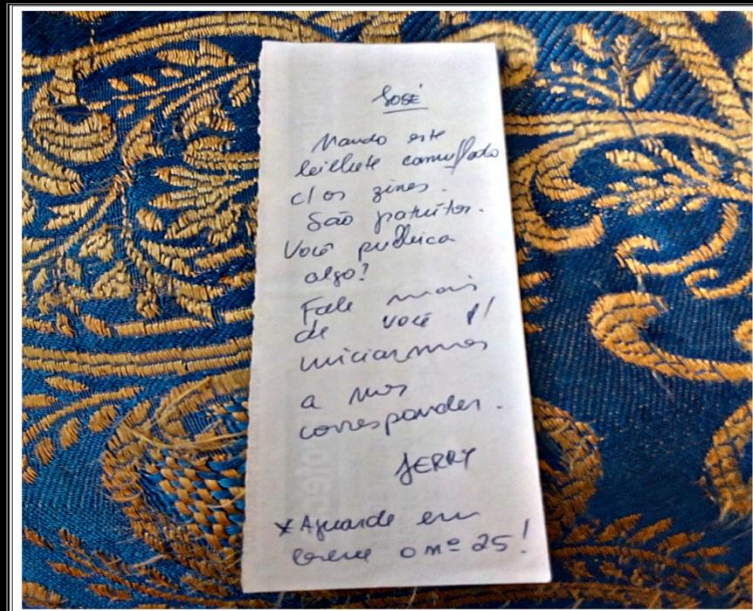 José
Mando este
bilhete camuflado
c/ os zines.
São gratuitos.
Você publica
algo?
Fale mais
de você p/
iniciarmos
a nos
corresponder.
JERRY
* Aguarde em
breve o nº 25!